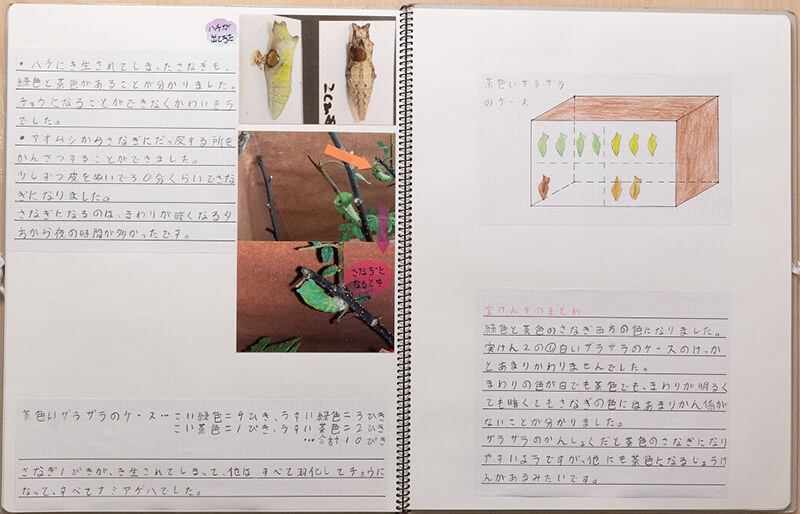 ハチが
出てきた
・ハチにき生されてしまったさなぎも、
緑色と茶色があることが分かりました。
チョウになることができなくかわいそう
でした。
・アオムシからさなぎにだっ皮する所も
かんさつすることができました。
少しずつ皮をぬいで30分くらいでさな
ぎになりました。
さなぎになるのは、まわりが暗くなる夕
方から夜の時間が多かったです。
さなぎに
なると中
茶色いザラザラのケース…こい緑色=4ひき、うすい緑色=3ひき
こい茶色=1ぴき、うすい茶色=2ひき
…合計10ぴき
さなぎ1ぴきが、き生されてしまって、他はすべて羽化してチョウに
なって、すべてナミアゲハでした。
茶色いザラザラ
のケース
実けん4のまとめ
緑色と茶色のさなぎ両方の色になりました。
実けん2の白いザラザラのケースのけっか
とあまりかわりませんでした。
まわりの色が白でも茶色でも、まわりが明るく
ても暗くてもさなぎの色にはあまりかん係が
ないことが分かりました。
ザラザラのかんしょくだと茶色のさなぎになり
やすいようですが、他にも茶色になるじょうけ
んがあるみたいです。